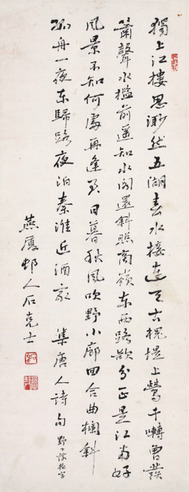 獨上江樓思渺然五湖春水接遙天古槐堤上鶯千囀曾發
簫聲水檻前遙知水闊還斜照高嶺東西路欲分正是江南好
風景不知何處再逢君日暮秋風吹野小廊回合曲闌斜
孤舟一夜東歸客夜泊秦淮近酒家 集唐人詩句
燕廈邨人石克士